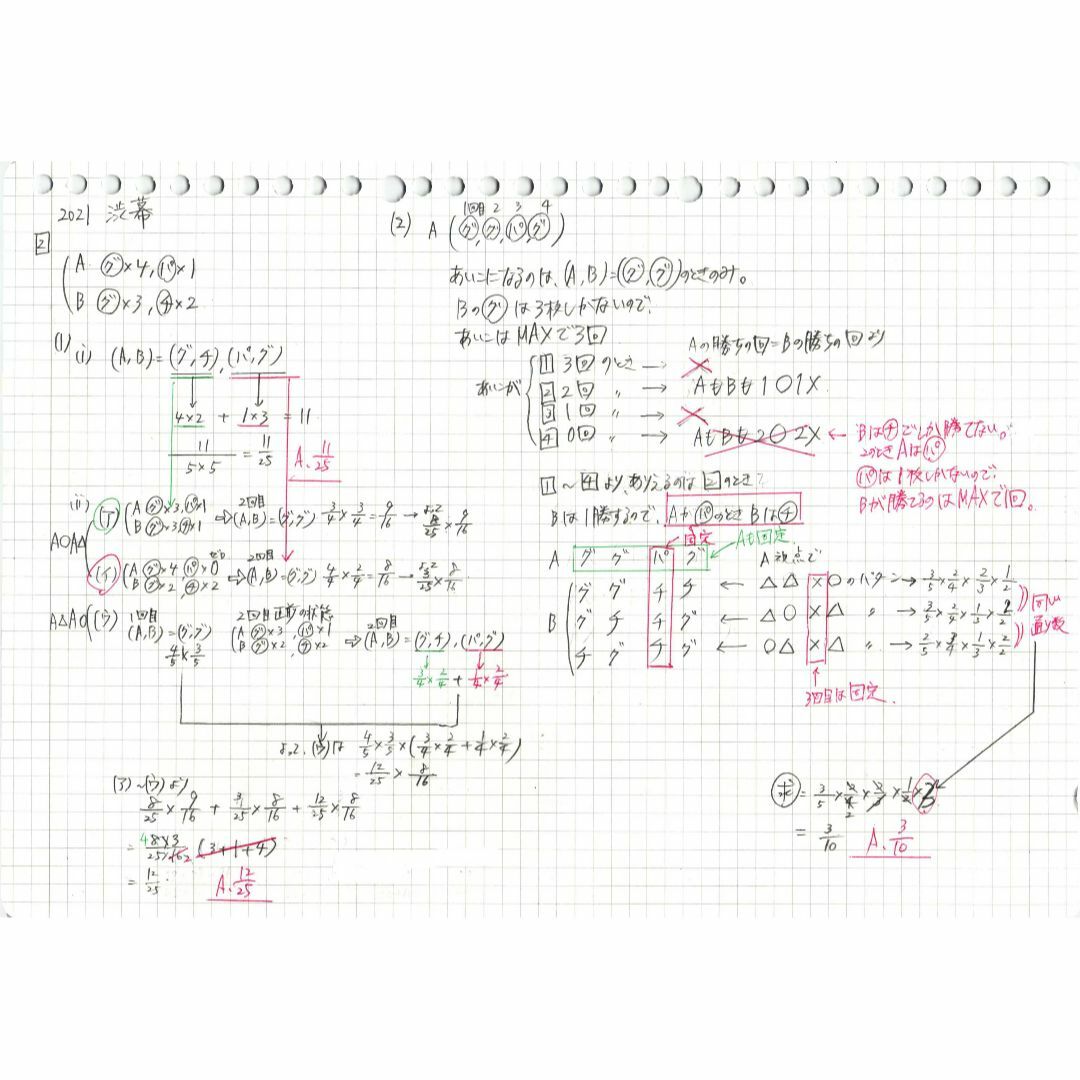 2021 渋幕
2
A グ×4, パ×1
B グ×3, チ×2
(1)
i) (A, B) = (グ, チ), (パ, グ)
4×2 + 1×3 = 11
11/5×5 = 11/25
A. 11/25
ii)
AOA△
(ア) (A グ×3, パ×1
B グ×3, チ×1
2回目
⇒(A, B) = (グ, グ) 3/4 × 3/4 = 9/16 → よって 8/25 × 9/16
(イ) (A グ×4 パ×0
B グ×2, チ×2
2回目
⇒(A, B) = (グ, グ) 4/4 × 2/4 = 8/16 → よって 3/25 × 8/16
A△AO
(ウ) 1回目
(A, B) = (グ, グ)
4/5 × 3/5
2回目直前の状態
(A グ×3, パ×1
B グ×2, チ×2
2回目
⇒(A, B) = (グ, チ), (パ, グ)
3/4 × 2/4 + 1/4 × 2/4
よって, (ウ)は 4/5 × 3/5 × (3/4 × 2/4 + 1/4 × 2/4)
= 12/25 × 8/16
(ア)~(ウ)より
8/25 × 9/16 + 3/25 × 8/16 + 12/25 × 8/16
= 8×3/25×16 (3+1+4)
= 12/25
A. 12/25
(2) A (グ, グ, パ, グ)
1回目 2 3 4
あいこになるのは、(A, B) = (グ, グ)のときのみ。
Bのグは3枚しかないので、
あいこはMAXで3回
Aの勝ちの回=Bの勝ちの回より
あいこが
1 3回のとき → ×
2 2回 〃 → AもBも1O1×
3 1回 〃 → ×
4 0回 〃 → AもBも2O2×
← Bはチでしか勝てない。
このときAはパ
パは1枚しかないので、
Bが勝てるのはMAXで1回。
1~4より、ありえるのは2のとき
Bは1勝するので、Aがパのとき Bはチ
固定
Aも固定
A グ グ パ グ
A視点で
B
グ グ チ チ ← △△×Oのパタン → 3/5 × 2/4 × 2/3 × 1/2
グ チ チ グ ← △O×△ 〃 → 3/5 × 2/4 × 1/3 × 2/2
チ グ チ グ ← O△×△ 〃 → 2/5 × 3/4 × 1/3 × 2/2
同じ
通り数
3回目は固定
求 = 3/5 × 2/4 × 2/3 × 1/2 × 3
= 3/10
A. 3/10